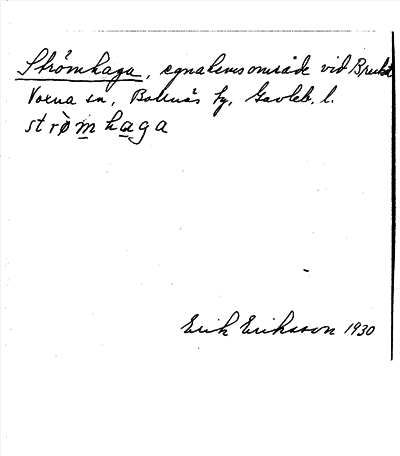 Strömhaga, egnahemsområde vid
Voxna sn, Bollnäs tg, Gävleb. l.
strø̀mhaga
Erik Eriksson 1930